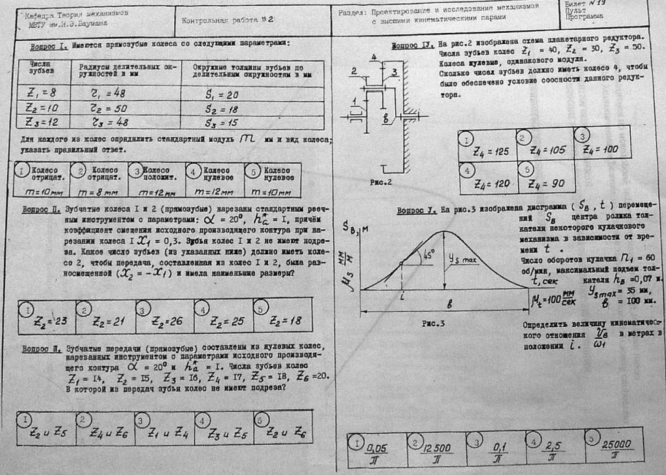 Кафедра Теория механизмов
МВТУ им.Н.Э.Баумана
Контрольная работа №2
Раздел: Проектирование и исследование механизмов
с высшими кинематическими парами
Билет №19
Пульт
Программа
Вопрос I. Имеются прямозубые колеса со следующими параметрами:
Числа зубьев
Радиусы делительных окружностей в мм
Окружные толщины зубьев по делительным окружностям в мм
Z₁=8 r₁=48 S₁=20
Z₂=10 r₂=50 S₂=18
Z₃=12 r₃=48 S₃=15
Для каждого из колес определить стандартный модуль m мм и вид колеса;
указать правильный ответ.
1 Колесо отрицат. m=10мм
2 Колесо отрицат. m=8мм
3 Колесо положит. m=12мм
4 Колесо нулевое m=12мм
5 Колесо нулевое m=10мм
Вопрос II. Зубчатые колеса I и 2 (прямозубые) нарезаны стандартным реечным
инструментом с параметрами: α = 20°, h*a = I, причём
коэффициент смещения исходного производящего контура при
нарезании колеса I x₁ = 0,3. Зубья колес I и 2 не имеют подреза.
Какое число зубьев (из указанных ниже) должно иметь колесо
2, чтобы передача, составленная из колес I и 2, была равносмещенной
(x₂ = -x₁) и имела наименьшие размеры?
1 Z₂=23
2 Z₂=21
3 Z₂=26
4 Z₂=25
5 Z₂=18
Зубчатые передачи (прямозубые) составлены из нулевых колес,
нарезанных инструментом с параметрами исходного производящего
контура α = 20° и h*a = I. Числа зубьев колес
Z₁= I4, Z₂ = I5, Z₃= I6, Z₄= I7, Z₅= I8, Z₆=20.
В которой из передач зубья колес не имеют подреза?
1 Z₂ и Z₅
2 Z₄ и Z₆
3 Z₁ и Z₄
4 Z₃ и Z₅
5 Z₂ и Z₆
Вопрос IУ. На рис.2 изображена схема планетарного редуктора.
Числа зубьев колес Z₁ = 40, Z₂ = 30, Z₃ = 50.
Колеса нулевые, одинакового модуля.
Сколько чисел зубьев должно иметь колесо 4, чтобы
было обеспечено условие соосности данного редуктора.
4
2
3
1
в
Рис.2
1 Z₄=125
2 Z₄=105
3 Z₄=100
4 Z₄=120
5 Z₄=90
Вопрос У. На рис.3 изображена диаграмма (S_B, t) перемещений
S_B центра ролика толкателя
некоторого кулачкового
механизма в зависимости от времени
t.
Число оборотов кулачка n₁= 60
об/мин, максимальный подъем толкателя
h_B=0,07 м.
y_Smax = 35 мм,
в = 100 мм.
Определить величину кинематического
отношения V_B/ω₁ в метрах в
положении i.
S_B, м
μ_S мм/м
45°
y_S max
i
в
t, сек
μ_t=100 мм/сек
Рис.3
1 0,05/π
2 12500/π
3 0,1/π
4 2,5/π
5 25000/π